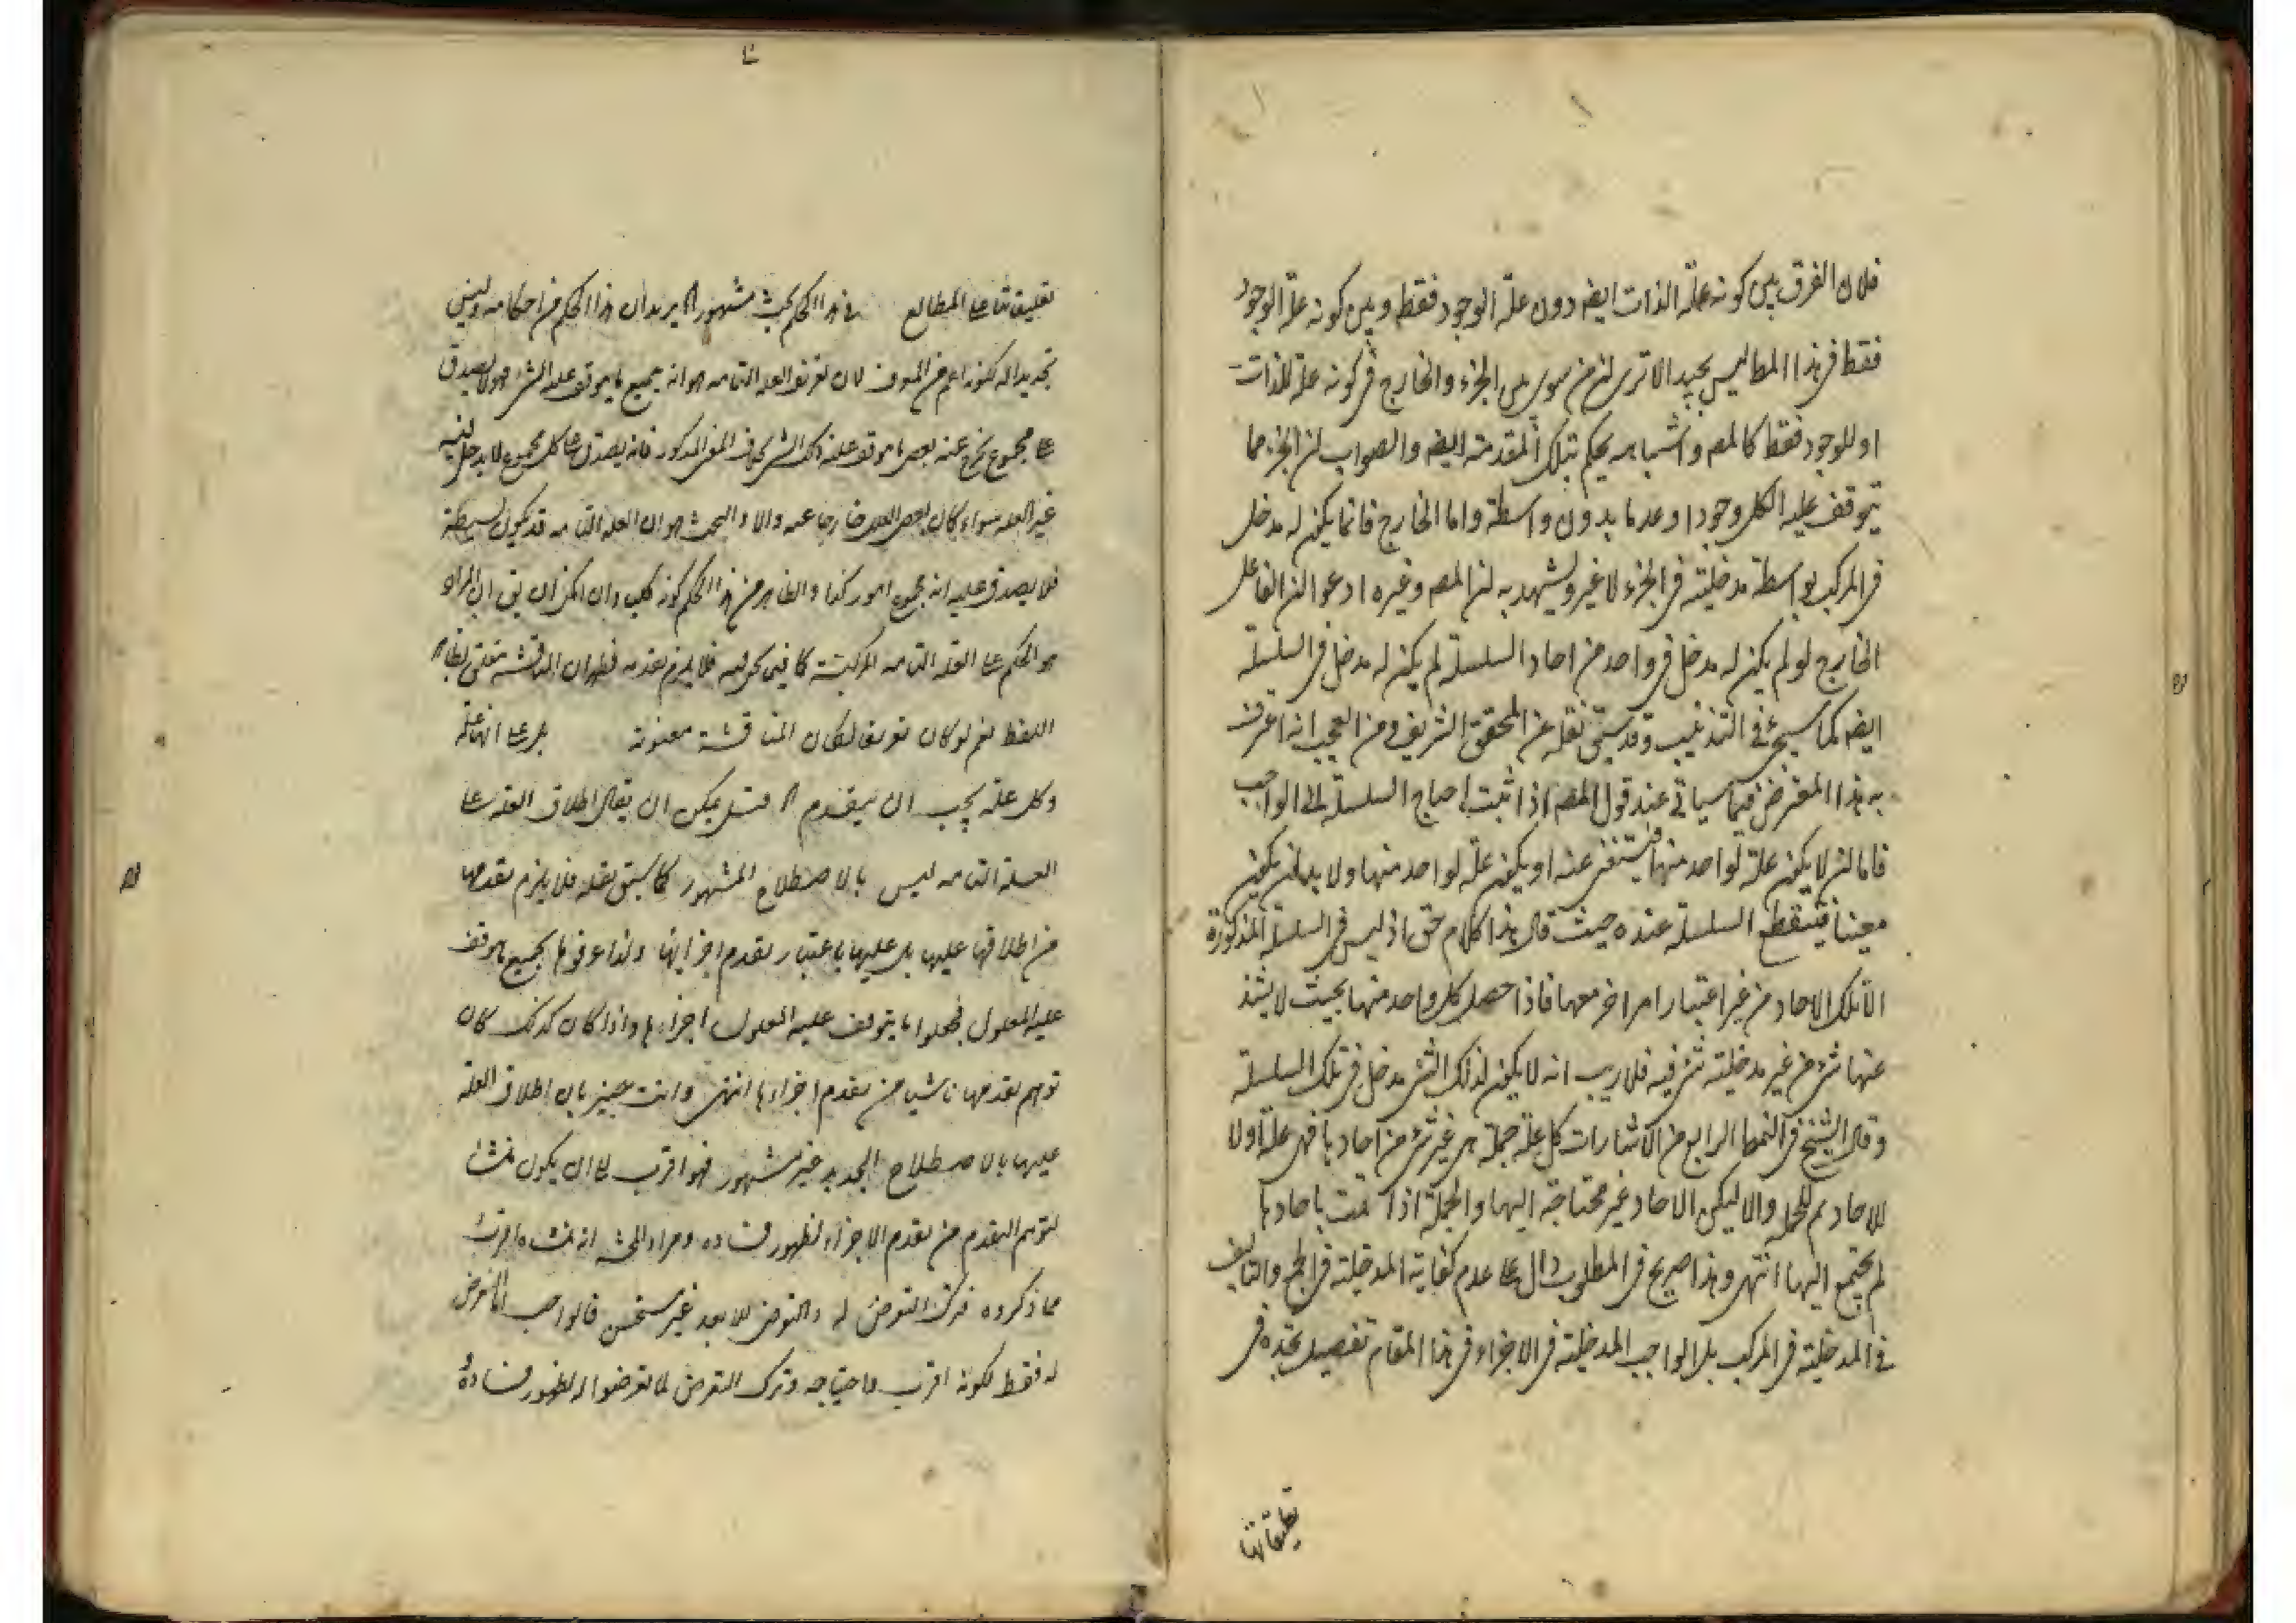 فلان الفرق بين كونه علة الذات ايضه دون علة الوجود فقط وبين كونه علة الوجود
فقط في هذا المطا ليس بجيد الا ترى لن من سوى بين الجزء والخارج في كونه علة للذات
او للوجود فقط كالمصه واشباهه يحكم بتلك المقدمة ايضه والصواب لن الجزء مما
يتوقف عليه الكل وجودا وعدما بدون واسطة واما الخارج فانما يكن له مدخل
في المركب بواسطة مدخليته في الجزء لا غير ويشهد به لن المصه وغيره ادعوا لن الفاعل
الخارج لو لم يكن له مدخل في واحد من احاد السلسلة لم يكن له مدخل في السلسلة
ايضه كما سيجئ في التذنيب وقد سبق نقله عن المحقق الشريف ومن العجب انه اعترف
به هذا المعترض فيما سياتي عند قول المصه اذا ثبت احتياج السلسلة الى الواجب
فاما لن لا يكون علة لواحد منها فيستغنى عنه او يكون علة لواحد منها ولا بد لن يكون
معينا فينقطع السلسلة عنده حيث قال هذا كلام حق اذ ليس في السلسلة المذكورة
الا تلك الاحاد من غير اعتبار امر اخر معها فاذا حصل كل واحد منها بحيث لا يشذ
عنها شئ من غير مدخلية شئ فيه فلا ريب انه لا يكون لذلك الشئ مدخل في تلك السلسلة
وقال الشيخ في النمط الرابع من الاشارات كل علة جملة هي غير شئ من احادها فهي علة اولا
للاحاد ثم للجملة والا فليكن الاحاد غير محتاجة اليها والجملة اذا تمت باحادها
لم يحتج اليها انتهى وهذا صريح في المطلوب دال على عدم كفاية المدخلية في الجمع والتاليف
في المدخلية في المركب بل الواجب المدخلية في الاجزاء في هذا المقام تفصيل تجده في
تعليقاتنا
تعليقاتنا على المطالع في هذا الحكم بحث مشهور اه يريد ان هذا الحكم من احكامه وليس
تحديدا له لكونه اعم من المعرف لان تعريف العلة التامة هو انه جميع ما يتوقف عليه الشئ فهو لا يصدق
على مجموع يخرج عنه بعض ما يتوقف عليه ذلك الشئ بخلاف المعنى المذكور فانه يصدق على كل مجموع لا يدخل فيه
غير العلة سواء كان بعض العلة خارجا عنه والا والبحث هو ان العلة التامة قد يكون بسيطة
فلا يصدق عليه انه مجموع امور كذا والظاهر من هذا الحكم كونه كليا وان امكن ان يق ان المراد
هو الحكم على العلة التامة المركبة كما فيما نحن فيه فلا يلزم تقدمه فظهر ان المناقشة متعلق بظاهر
اللفظ نعم لو كان تعريفا لكان المناقشة معنوية بل على انها علة
وكل علة يجب ان يتقدم اه قيل يمكن ان يقال اطلاق العلة على
العلة التامة ليس بالاصطلاح المشهور كما سبق نقله فلا يلزم تقدمها
من اطلاقها عليها بل عليها باعتبار تقدم اجزائها ولذا عرفوها بجميع ما يتوقف
عليه المعلول فجعلوا ما يتوقف عليه المعلول اجزاءها واذا كان كذلك كان
توهم تقدمها ناشيا من تقدم اجزاءها انتهى وانت خبير بان اطلاق العلة
عليها بالاصطلاح الجديد غير مشهور فهو اقرب لا ان يكون منشأ
لتوهم التقدم من تقدم الاجزاء لظهور فساده ومراد المحشي انه منشاء اقرب
مما ذكروه فترك التعرض له والتعرض للابعد غير مستحسن فالواجب التعرض
له فقط لكونه اقرب واحتياجه وترك التعرض لما تعرضوا له لظهور فساده